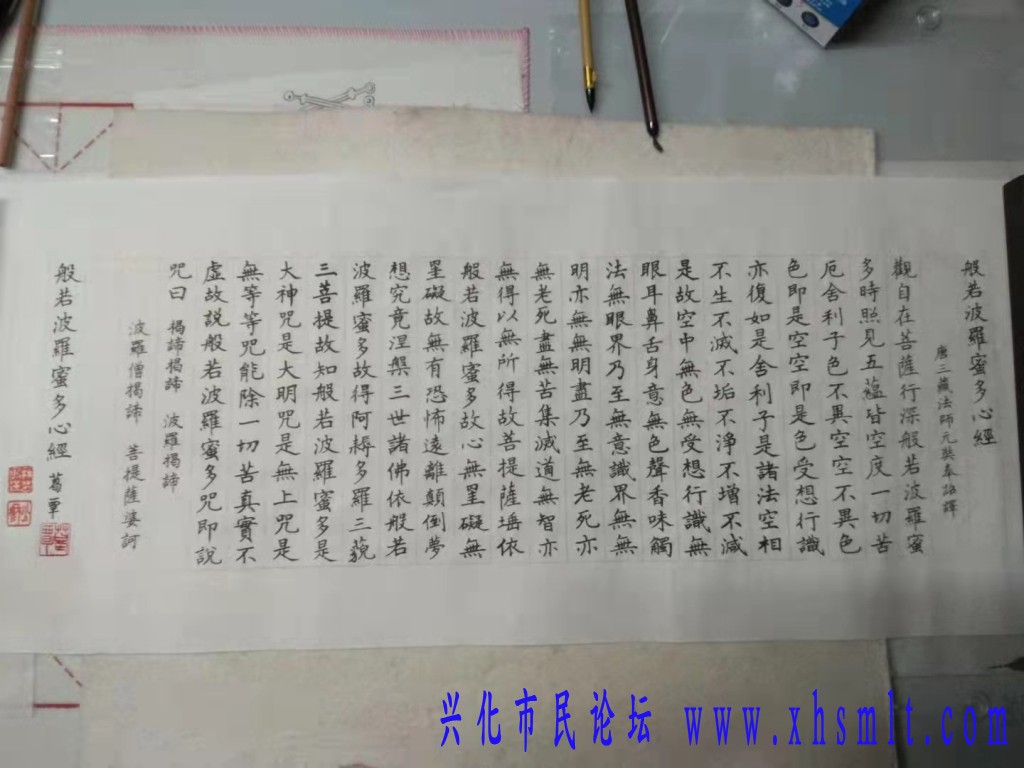 般若波羅蜜多心經
唐三藏法師元奘奉詔譯
觀自在菩薩行深般若波羅蜜
多時照見五蘊皆空度一切苦
厄舍利子色不異空空不異色
色即是空空即是色受想行識
亦復如是舍利子是諸法空相
不生不滅不垢不淨不增不減
是故空中無色無受想行識無
眼耳鼻舌身意無色聲香味觸
法無眼界乃至無意識界無無
明亦無無明盡乃至無老死亦
無老死盡無苦集滅道無智亦
無得以無所得故菩提薩埵依
般若波羅蜜多故心無罣礙無
罣礙故無有恐怖遠離顛倒夢
想究竟涅槃三世諸佛依般若
波羅蜜多故得阿耨多羅三藐
三菩提故知般若波羅蜜多是
大神咒是大明咒是無上咒是
無等等咒能除一切苦真實不
虛故說般若波羅蜜多咒即說
咒曰 揭諦揭諦 波羅揭諦
波羅僧揭諦 菩提薩婆訶
般若波羅蜜多心經 葛覃
兴化市民论坛 www.xhsmlt.com